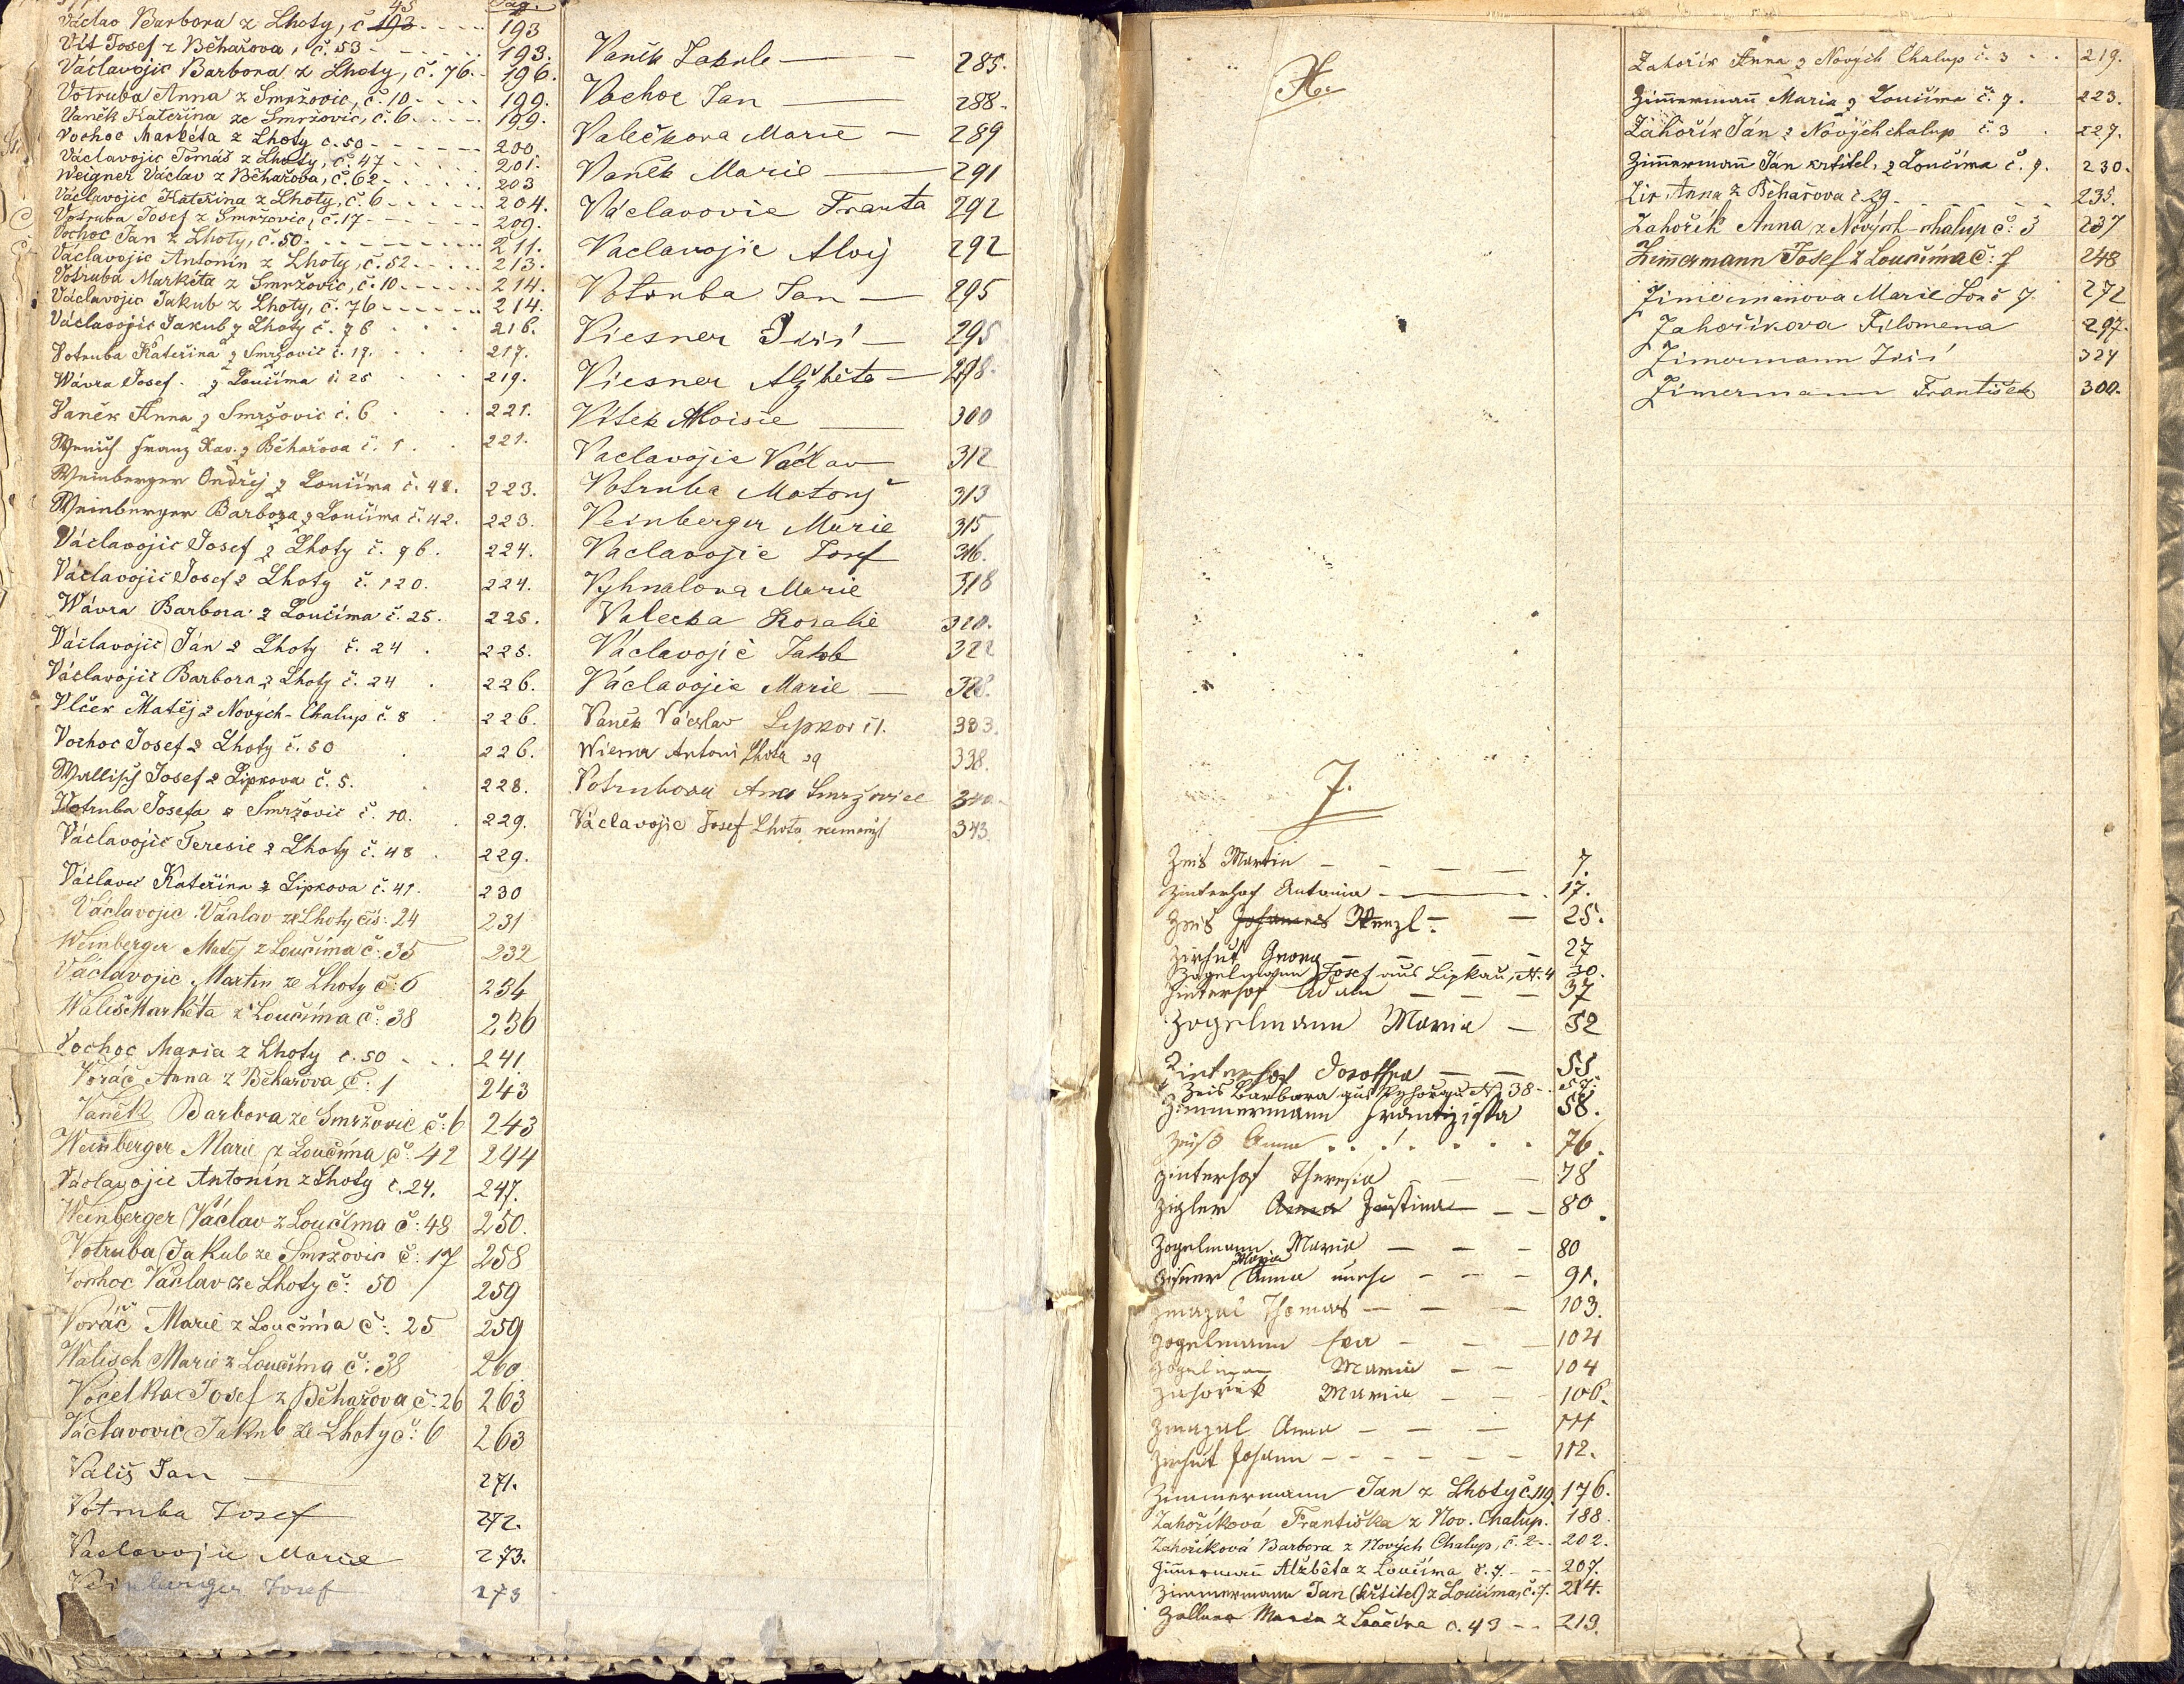 45 Pag.
Václav Barbora z Lhoty, č 193 - - - - 193
Vít Josef z Běhařova, č. 53 - - - - - 193.
Václavojic Barbora z Lhoty, č. 76. - 196.
Votruba Anna z Smržovic, č. 10 - - - - 199.
Vaněk Kateřina ze Smržovic, č. 6 - - - - 199.
Vochoc Markéta z Lhoty č. 50 - - - - - - 200
Václavojic Tomáš z Lhoty, č. 47 - - - - 201.
Weigner Václav z Běhařova, č. 62 - - - - - 203
Václavojic Kateřina z Lhoty, č. 6 - - - - - 204.
Votruba Josef z Smržovic, č. 17 - - - - - 209.
Vochoc Jan z Lhoty, č. 50. - - - - - - - - 211.
Václavojic Antonín z Lhoty, č. 52 - - - - 213.
Votruba Markéta z Smržovic, č. 10 - - - - - 214.
Václavojic Jakub z Lhoty, č. 76 - - - - - - 214.
Václavojic Jakub z Lhoty č. 76 . . . 216.
Votruba Kateřina z Smržovic č. 17. . . . 217.
Wávra Josef. z Loučíma č 25 . . . 219.
Vaněk Anna z Smržovic č. 6 . . . . 221.
Wenisch Franz Xav. z Běhařova č. 1 . . 221.
Weinberger Ondřej z Loučíma č. 48. 223.
Weinberger Barbora z Loučíma č. 42. 223.
Václavojic Josef z Lhoty č. 96. 224.
Václavojič Josef z Lhoty č. 120. 224.
Wávra Barbora z Loučíma č. 25. 225.
Václavojic Ján z Lhoty č. 24 . 225.
Václavojic Barbora z Lhoty č. 24 . 226.
Vlček Matěj z Nových-Chalup č. 8 . 226.
Vochoc Josef z Lhoty č. 50 . 226.
Wallisch Josef z Lipkova č. 5. . 228.
Votruba Josefa z Smržovic č. 10. . 229.
Václavojic Teresie z Lhoty č. 48 . 229.
Václavec Kateřina z Lipkova č. 41. 230
Václavojic Václav ze Lhoty čís: 24 231
Weinberger Matěj z Loučíma č: 35 232
Václavojic Martin ze Lhoty č: 6 234
Wališ Markéta z Loučíma č: 38 236
Vochoc Maria z Lhoty č. 50 - - . 241.
Voráč Anna z Běhařova č: 1 243
Vaněk Barbora ze Smržovic č: 6 243
Weinberger Marie z Loučíma č: 42 244
Václavojic Antonín z Lhoty č. 24. 247.
Weinberger Václav z Loučíma č: 48 250.
Votruba Jakub ze Smržovic č: 17 258
Vochoc Václav ze Lhoty č: 50 259
Voráč Marie z Loučíma č: 25 259
Walisch Marie z Loučíma č: 38 260
Vocelka Josef z Běhařova č: 26 263
Václavovic Jakub ze Lhoty č: 6 263
Vališ Jan — 271.
Votruba Josef 272.
Vaclavojic Marie 273.
Veinberger Josef 273
Vaněk Jakub — — 285.
Vochoc Jan — 288.
Valečkova Marie — 289
Vaněk Marie — 291
Václavovic Franta 292
Vaclavojic Aloij 292
Votruba Jan — 295
Viesner Jiří — 295
Viesner Alžběta — 298.
Vítek Aloisie — 300
Vaclavojic Václav 312
Votruba Matouš 313
Veinberger Marie 315
Vaclavojic Josef 316.
Vyhnalova Marie 318
Valecka Rosalie 320.
Václavojič Jakob 322
Václavojic Marie — 328.
Vaněk Václav Lipkov č 1. 333.
Wiesner Antoni Lhota 338.
Votrubova Ana Smržovice 340.
Václavojic Josef Lhota 343.
X.
Z.
Zeis Martin — — — — 7.
Zinterhof Antonia — — . 17.
Zeis Johannes Wenzl. — — 25.
Zirhut Georg — — — — 27
Zogelmann Josef aus Lipkau, N. 4 30.
Zinterhof Adam — — — 37
Zogelmann Maria — 52
Zinterhof Dorothea — — 55
Zeis Barbara aus N. 38 - - 57.
Zimmermann Frantziska 58.
Zeiss Anna . . . . . . . 76.
Zinterhof Theresia — — — 78
Zigler Anna Justina — — 80.
Zogelmann Maria — — — 80
Maria
Zisner Anna — — — 91.
Zmazal Thomas — — — 103.
Zogelmann Eva — — 104
Zogelmann Maria — — 104
Zahořik Maria — — 106.
Zmazal Anna — — — 111
Zirhut Johann — — — — — 112.
Zimmermann Jan z Lhoty č. 119. 176.
Zahoříková Františka z Nov. Chalup. 188.
Zahoříková Barbora z Nových Chalup, č. 2 - - 202.
Zimmermann Alžběta z Loučíma č. 7. - - - 207.
Zimmermann Jan (křtitel) z Loučíma, č. 7. 214.
Maria z Loučíma č. 43 - - 219.
Zahořik Anna z Nových Chalup č. 3 . . 219.
Zimmermann Maria z Loučíma č. 7. 223.
Zahořík Ján z Nových chalup č. 3 . 227.
Zimmermann Ján křtitel, z Loučíma č. 9. 230.
Anna z Běhařova č. 29. - - - - 235.
Zahořík Anna z Nových-chalup č: 3 237
Zimmermann Josef z Loučíma č: 7 248
Zimermanova Marie Louč 7. 272
Zahoříkova Filomena 297.
Zimermann Jiří 324
Zimermann František 300.